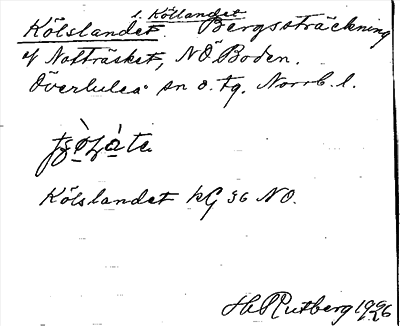 l. Köllandet
Kölslandet. Bergssträckning
vf Notträsket, NÖ Boden.
Överluleå sn o. tg. Norrb. l.
Kölslandet kG 36 NO.
H Rutberg 1926